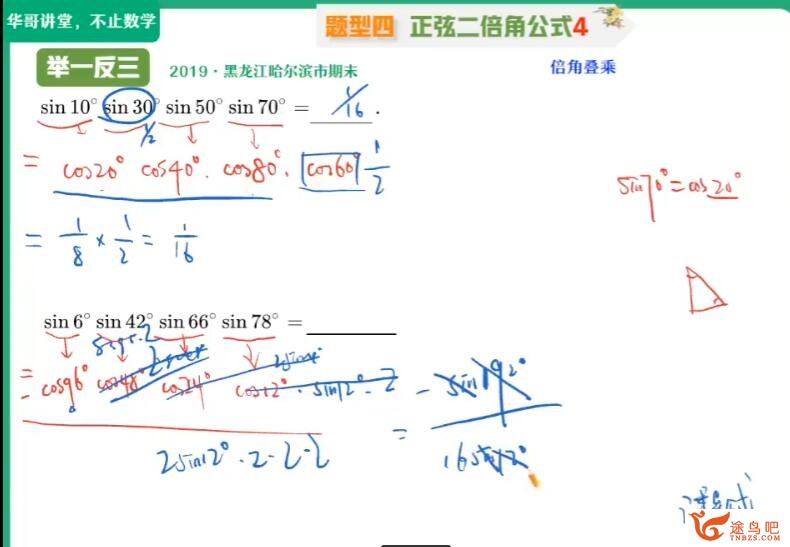 华哥讲堂，不止数学
题型四 正弦二倍角公式4
举一反三 2019·黑龙江哈尔滨市期末 倍角叠乘
sin 10° sin 30° sin 50° sin 70° = 1/16 .
1/2
= cos20° cos40° · cos80° · cos60° 1/2
sin70° = cos20°
= 1/8 × 1/2 = 1/16
sin 6° sin 42° sin 66° sin 78° =
= cos96° cos48° cos24° cos12° · sin12° · 2
2sin12° · 2 · 2 · 2
= - sin192° / 16sin12°
途鸟吧
TNBZS.COM